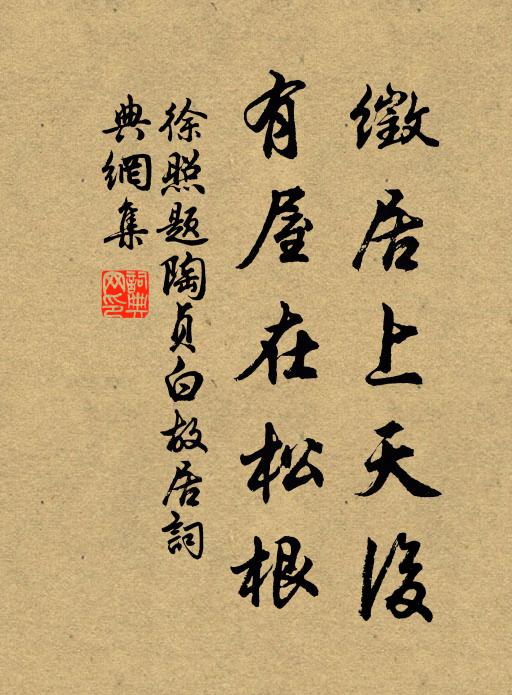 徵居上天後
有屋在松根
徐照題陶貞白故居詞
典網集
詞典
网印